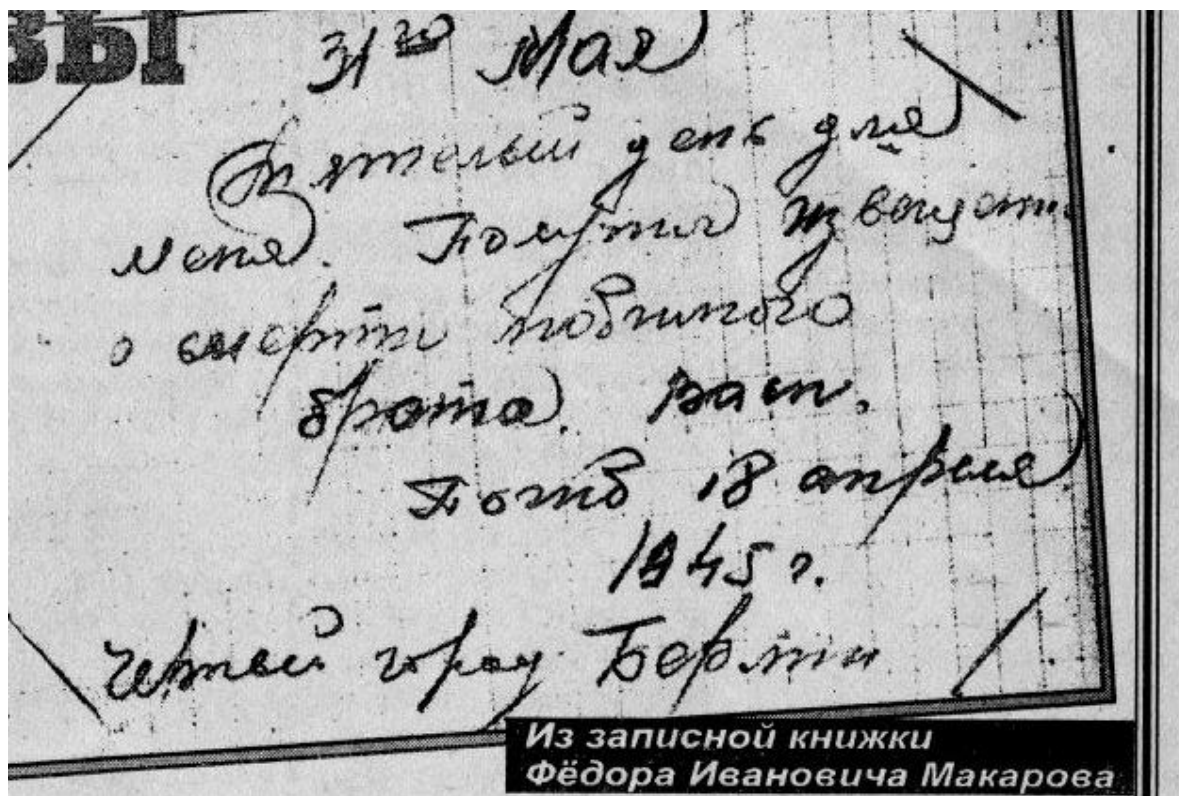 ЗЫ
31го Мая
Тяжелый день для
меня. Получил извещени
о смерти любимого
брата. Васи.
Погиб 18 апреля
1945 г.
город Берлин
Из записной книжки
Фёдора Ивановича Макарова